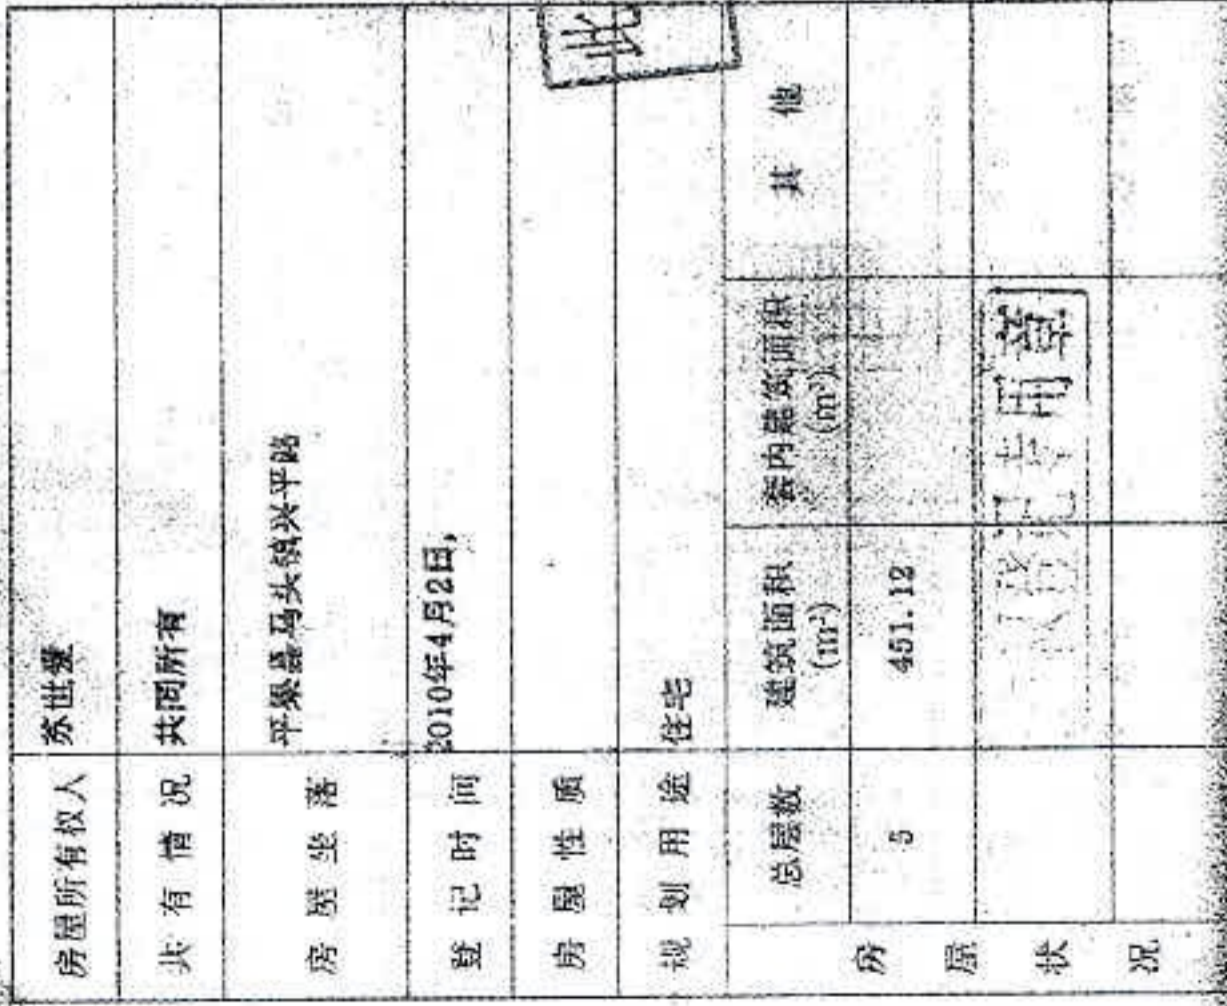 房屋所有权人 苏世爱
共有情况 共同所有
房屋坐落 平果县马头镇兴平路
登记时间 2010年4月2日,
房屋性质
规划用途 住宅
房屋状况
总层数 建筑面积(m²) 套内建筑面积(m²) 其他
5 451.12
专用章
此